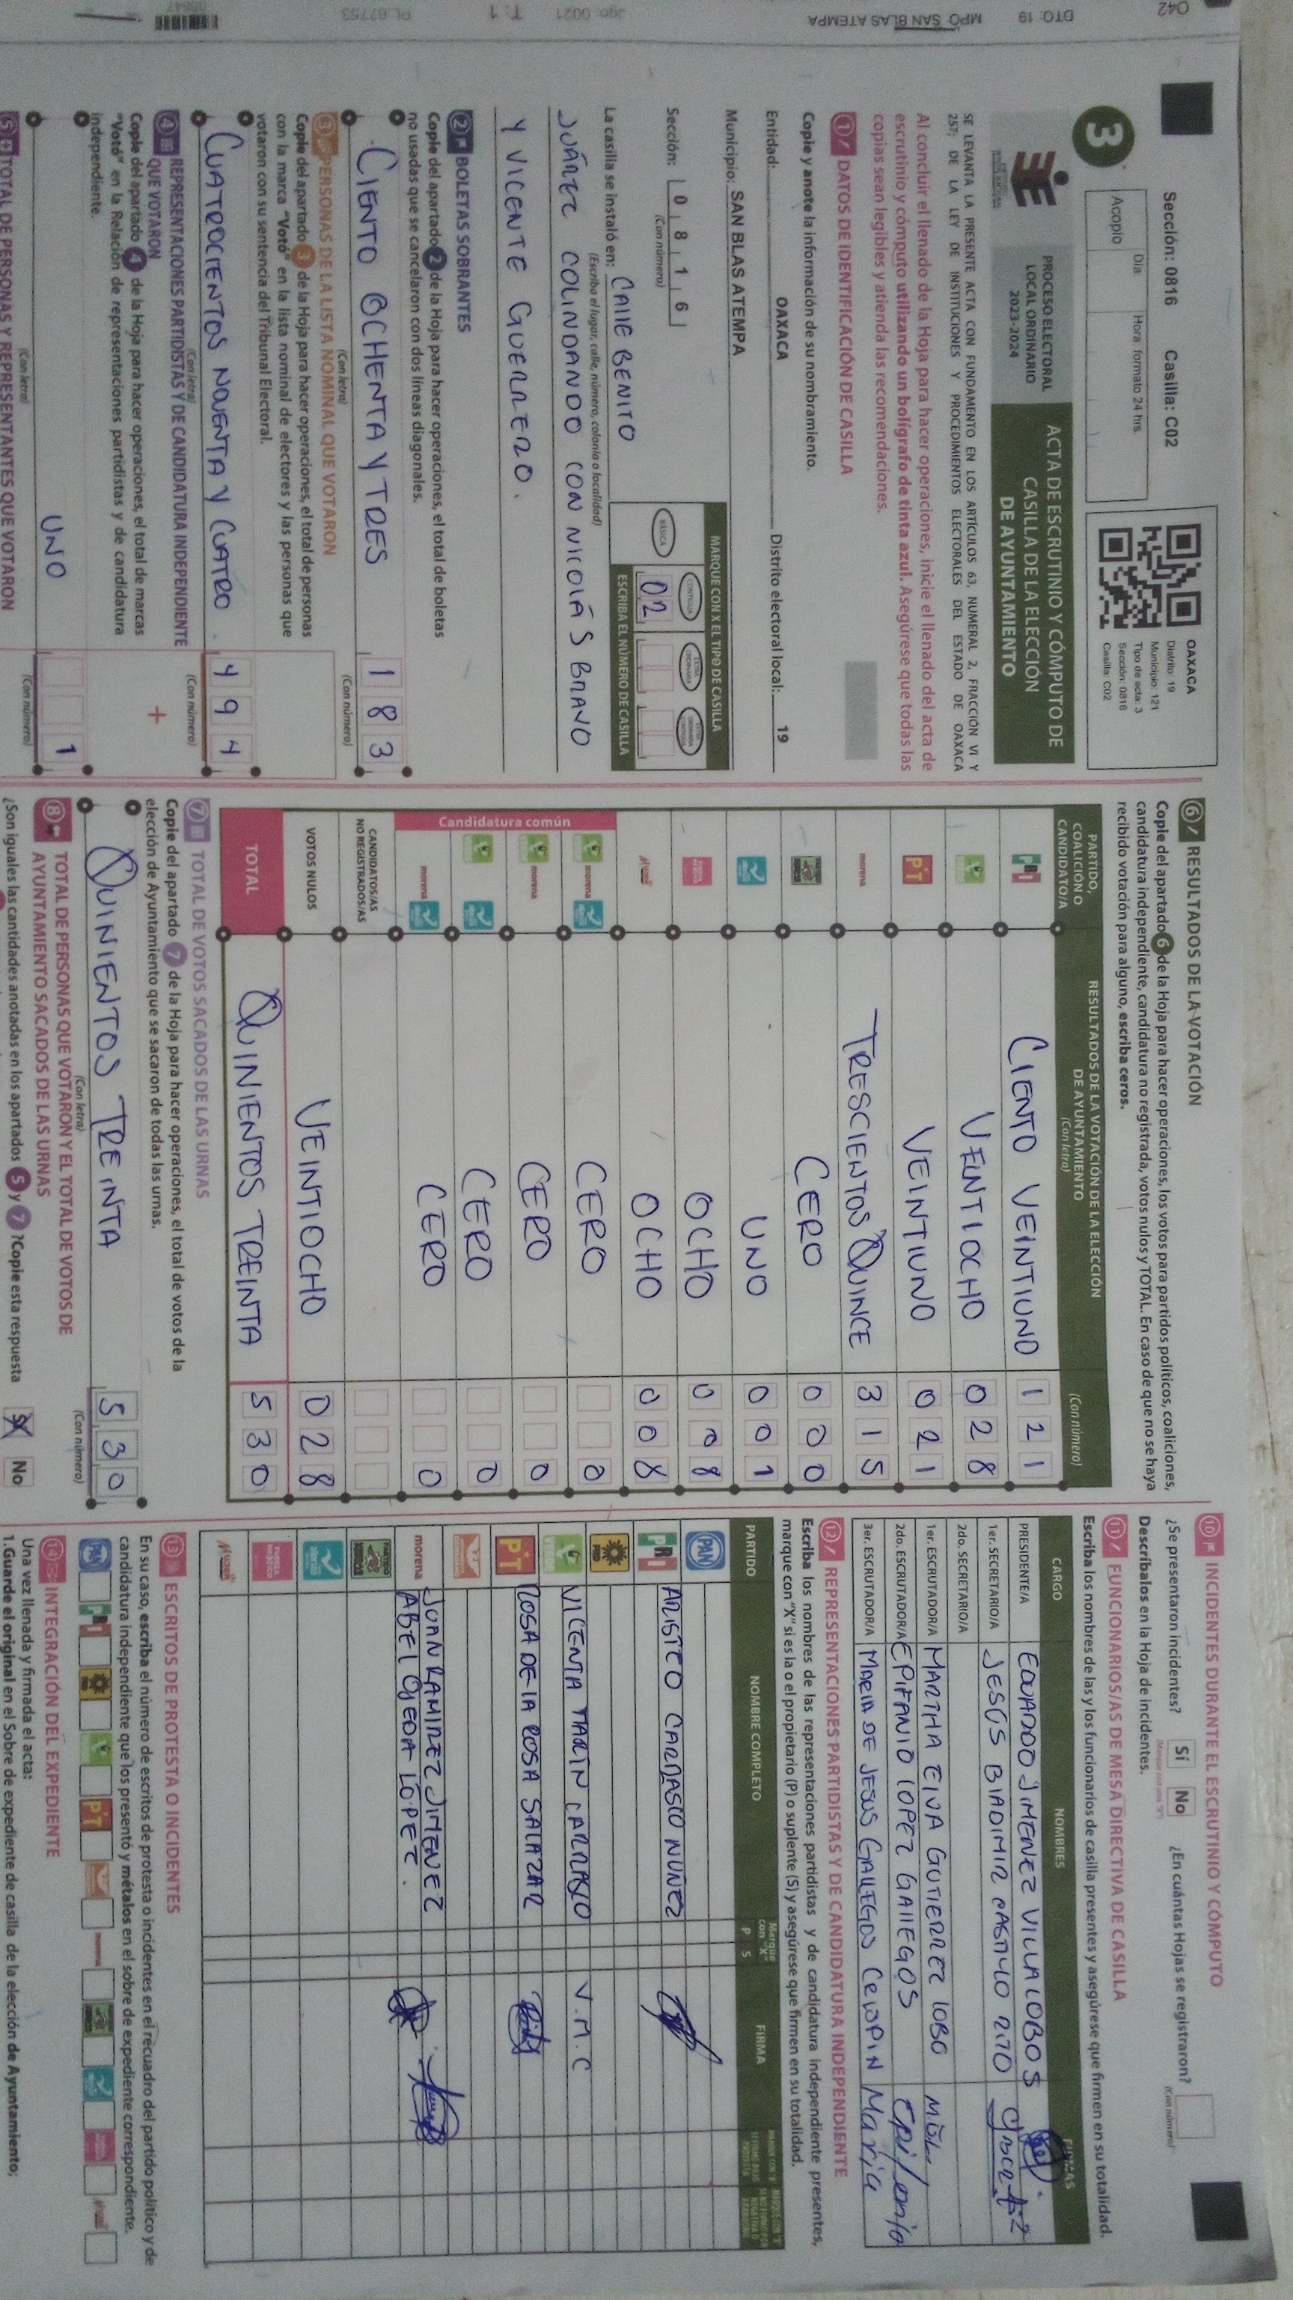 042
DTO. 19
MPO. SAN BLAS ATEMPA
Jgo. 0021
T: 1
PL.62753
Sección: 0816 Casilla: C02
3
Acopio
Día:
Hora: formato 24 hrs
OAXACA
Distrito: 19
Municipio: 121
Tipo de acta: 3
Sección: 0816
Casilla: C02
PROCESO ELECTORAL
LOCAL ORDINARIO
2023-2024
ACTA DE ESCRUTINIO Y CÓMPUTO DE
CASILLA DE LA ELECCIÓN
DE AYUNTAMIENTO
SE LEVANTA LA PRESENTE ACTA CON FUNDAMENTO EN LOS ARTÍCULOS 63, NUMERAL 2, FRACCIÓN VI Y
257; DE LA LEY DE INSTITUCIONES Y PROCEDIMIENTOS ELECTORALES DEL ESTADO DE OAXACA
Al concluir el llenado de la Hoja para hacer operaciones, inicie el llenado del acta de
escrutinio y cómputo utilizando un bolígrafo de tinta azul. Asegúrese que todas las
copias sean legibles y atienda las recomendaciones.
1 DATOS DE IDENTIFICACIÓN DE CASILLA
Copie y anote la información de su nombramiento.
Entidad: OAXACA Distrito electoral local: 19
Municipio: SAN BLAS ATEMPA
Sección: 0 8 1 6
(Con número)
MARQUE CON X EL TIPO DE CASILLA
BÁSICA
CONTIGUA
02
ESCRIBA EL NÚMERO DE CASILLA
La casilla se instaló en: CALLE BENITO
(Escriba el lugar, calle, número, colonia o localidad)
JUÁREZ COLINDANDO CON NICOLÁS BRAVO
Y VICENTE GUERRERO.
2 BOLETAS SOBRANTES
Copie del apartado 2 de la Hoja para hacer operaciones, el total de boletas
no usadas que se cancelaron con dos líneas diagonales.
CIENTO OCHENTA Y TRES 1 8 3
(Con letra) (Con número)
3 PERSONAS DE LA LISTA NOMINAL QUE VOTARON
Copie del apartado 3 de la Hoja para hacer operaciones, el total de personas
con la marca "Votó" en la lista nominal de electores y las personas que
votaron con su sentencia del Tribunal Electoral.
CUATROCIENTOS NOVENTA Y CUATRO. 4 9 4
(Con letra) (Con número)
4 REPRESENTACIONES PARTIDISTAS Y DE CANDIDATURA INDEPENDIENTE
QUE VOTARON
+
Copie del apartado 4 de la Hoja para hacer operaciones, el total de marcas
"Votó" en la Relación de representaciones partidistas y de candidatura
independiente.
UNO 1
(Con letra) (Con número)
5 TOTAL DE PERSONAS Y REPRESENTANTES QUE VOTARON
6 RESULTADOS DE LA VOTACIÓN
Copie del apartado 6 de la Hoja para hacer operaciones, los votos para partidos políticos, coaliciones,
candidatura independiente, candidatura no registrada, votos nulos y TOTAL. En caso de que no se haya
recibido votación para alguno, escriba ceros.
PARTIDO,
COALICIÓN O
CANDIDATO/A
RESULTADOS DE LA VOTACIÓN DE LA ELECCIÓN
DE AYUNTAMIENTO
(Con letra)
(Con número)
PRI CIENTO VEINTIUNO 1 2 1
VEINTIOCHO 0 2 8
PT VEINTIUNO 0 2 1
morena TRESCIENTOS QUINCE 3 1 5
CERO 0 0 0
UNO 0 0 1
OCHO 0 0 8
OCHO 0 0 8
Candidatura común
morena CERO 0
morena CERO 0
CERO 0
morena CERO 0
CANDIDATOS/AS
NO REGISTRADOS/AS
VOTOS NULOS VEINTIOCHO 0 2 8
TOTAL QUINIENTOS TREINTA 5 3 0
7 TOTAL DE VOTOS SACADOS DE LAS URNAS
Copie del apartado 7 de la Hoja para hacer operaciones, el total de votos de la
elección de Ayuntamiento que se sacaron de todas las urnas.
QUINIENTOS TREINTA 5 3 0
(Con letra) (Con número)
8 TOTAL DE PERSONAS QUE VOTARON Y EL TOTAL DE VOTOS DE
AYUNTAMIENTO SACADOS DE LAS URNAS
¿Son iguales las cantidades anotadas en los apartados 5 y 7? Copie esta respuesta Sí No
10 INCIDENTES DURANTE EL ESCRUTINIO Y CÓMPUTO
¿Se presentaron incidentes? Sí No ¿En cuántas Hojas se registraron?
(Con número)
Descríbalos en la Hoja de incidentes.
11 FUNCIONARIOS/AS DE MESA DIRECTIVA DE CASILLA
Escriba los nombres de las y los funcionarios de casilla presentes y asegúrese que firmen en su totalidad.
CARGO NOMBRES FIRMAS
PRESIDENTE/A EDUARDO JIMENEZ VILLALOBOS
1er. SECRETARIO/A JESÚS BLADIMIR CASTILLO
2do. SECRETARIO/A
1er. ESCRUTADOR/A MARTHA ELVA GUTIERREZ LOBO
2do. ESCRUTADOR/A EPIFANIO LOPEZ GALLEGOS Epifanio
3er. ESCRUTADOR/A MARIA DE JESUS GALLEGOS Maria
12 REPRESENTACIONES PARTIDISTAS Y DE CANDIDATURA INDEPENDIENTE
Escriba los nombres de las representaciones partidistas y de candidatura independiente presentes,
marque con "X" si es la o el propietario (P) o suplente (S) y asegúrese que firmen en su totalidad.
PARTIDO NOMBRE COMPLETO
Marque
con "X"
P S
FIRMA
PAN
PRI ARISTEO CARRASCO NUÑEZ
PRD
VICENTA MARTIN CARRASCO V.M.C
PT ROSA DE LA ROSA SALAZAR
morena JUAN RAMIREZ JIMENEZ
ABEL OJEDA LÓPEZ.
13 ESCRITOS DE PROTESTA O INCIDENTES
En su caso, escriba el número de escritos de protesta o incidentes en el recuadro del partido político y de
candidatura independiente que los presentó y métalos en el sobre de expediente correspondiente.
PAN PRI PRD PT morena
14 INTEGRACIÓN DEL EXPEDIENTE
Una vez llenada y firmada el acta:
1. Guarde el original en el Sobre de expediente de casilla de la elección de Ayuntamiento;